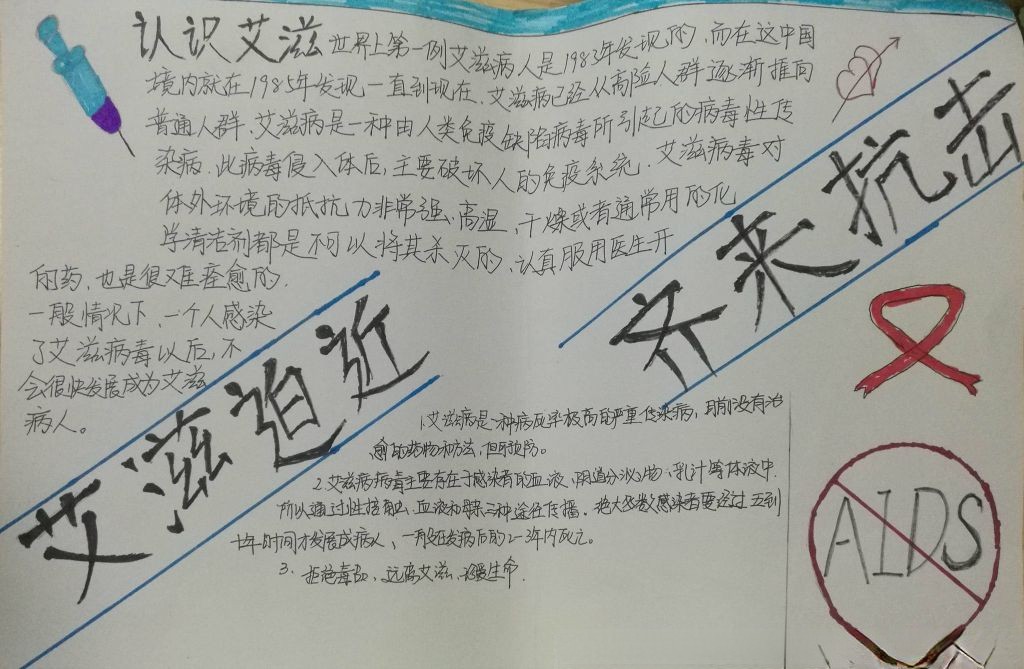 认识艾滋 世界上第一例艾滋病人是1983年发现的,而在这中国
境内就在1985年发现一直到现在,艾滋病已经从高险人群逐渐推向
普通人群,艾滋病是一种由人类免疫缺陷病毒所引起的病毒性传
染病.此病毒侵入体后,主要破坏人的免疫系统.艾滋病毒对
体外环境的抵抗力非常强、高温,干燥或者通常用的化
学清洁剂都是不可以将其杀灭的、认真服用医生开
的药,也是很难痊愈的,
一般情况下、一个人感染
了艾滋病毒以后,不
会很快发展成为艾滋
病人。
艾滋迫近
齐来抗击
1.艾滋病是一种病死率极高的严重传染病,目前没有治
愈的药物和方法,但可预防。
2.艾滋病病毒主要存在于感染者的血液、阴道分泌物、乳汁等体液中.
所以通过性接触、血液和母婴三种途径传播.绝大多数感染者要经过五到
十年时间才发展成病人,一般在发病后的2-3年内死亡。
3、拒绝毒品,远离艾滋、珍爱生命.
AIDS